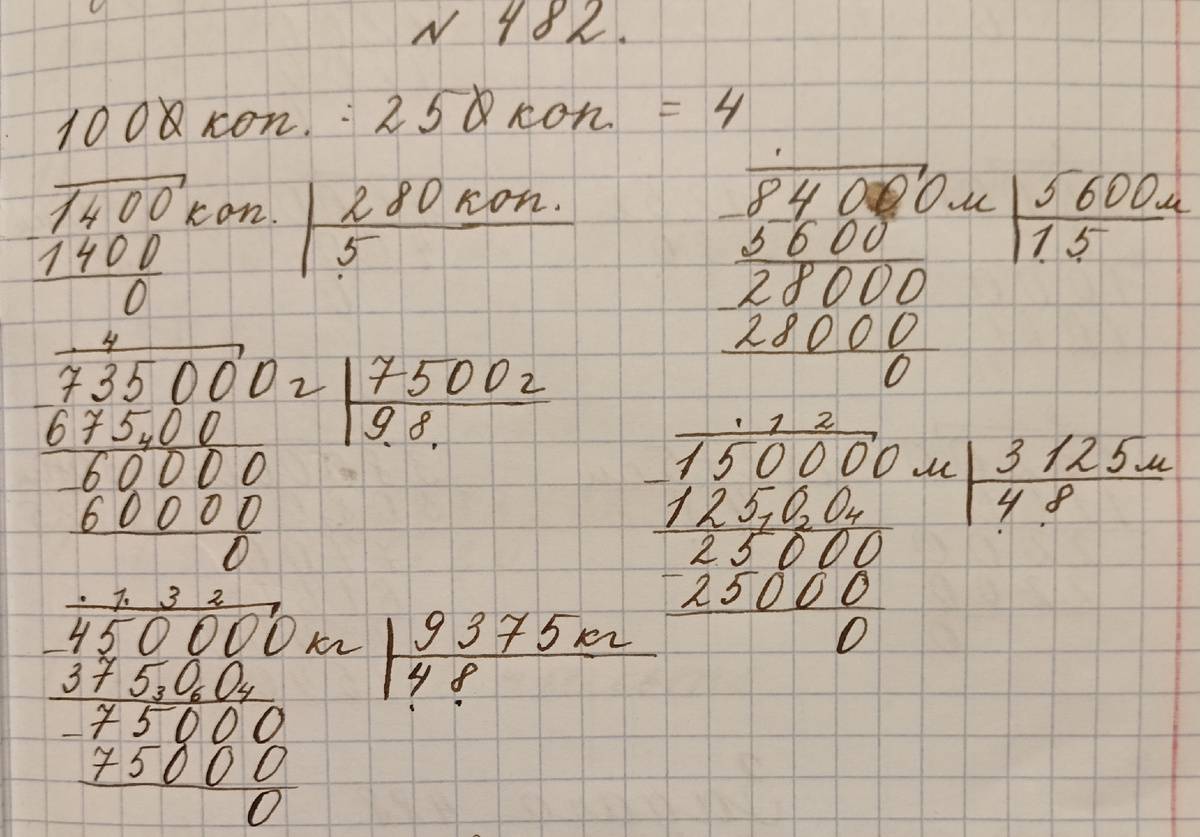 № 482.
1000 коп. : 250 коп. = 4
1400 коп. | 280 коп.
1400 | 5
0
84000 м | 5600 м
5600 | 15
28000
28000
0
4
735000 г | 7500 г
67500 | 98
4
60000
60000
0
1 2
150000 м | 3125 м
12500 | 48
1 2 4
25000
25000
0
1 3 2
450000 кг | 9375 кг
37500 | 48
3 6 4
75000
75000
0